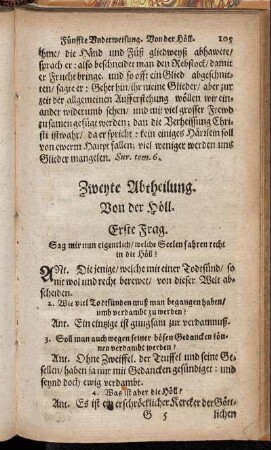 Fünffte Underweisung. Von der Höll. 105
ihme/ die Händ und Füß gliedweyß abhawete/
sprach er: also beschneidet man den Rebstock/ damit
er Frucht bringe. und so offt ein Glied abgeschnit-
ten/ sagte er: Gehet hin/ ihr meine Glieder/ aber zur
zeit der allgemeinen Aufferstehung wöllen wir ein-
ander widerumb sehen/ und mit viel grosser Frewd
zusamen gefüget werden; dan die Verheissung Chri-
sti ist wahr/ da er spricht: kein einiges Härlein soll
von ewerm Haupt fallen; viel weniger werden uns
Glieder mangelen. Sur. tom. 6.
Zweyte Abtheilung.
Von der Höll.
Erste Frag.
Sag mir nun eigentlich/ welche Seelen fahren recht
in die Höll?
ANt. Die jenige/ welche mit einer Todtsünd/ so
nit wol und recht berewet/ von dieser Welt ab-
scheiden.
2. Wie viel Todtsünden muß man begangen haben/
umb verdambt zu werden?
Ant. Ein eintzige ist gnugsam zur verdamnuß.
3. Soll man auch wegen seiner bösen Gedancken kön-
nen verdambt werden?
Ant. Ohne Zweiffel. der Teuffel und seine Ge-
sellen/ haben ja nur mit Gedancken gesündiget: und
seynd doch ewig verdambt.
4. Was ist aber die Höll?
Ant. Es ist ein erschröcklicher Kercker der Gött-
G 5 lichen